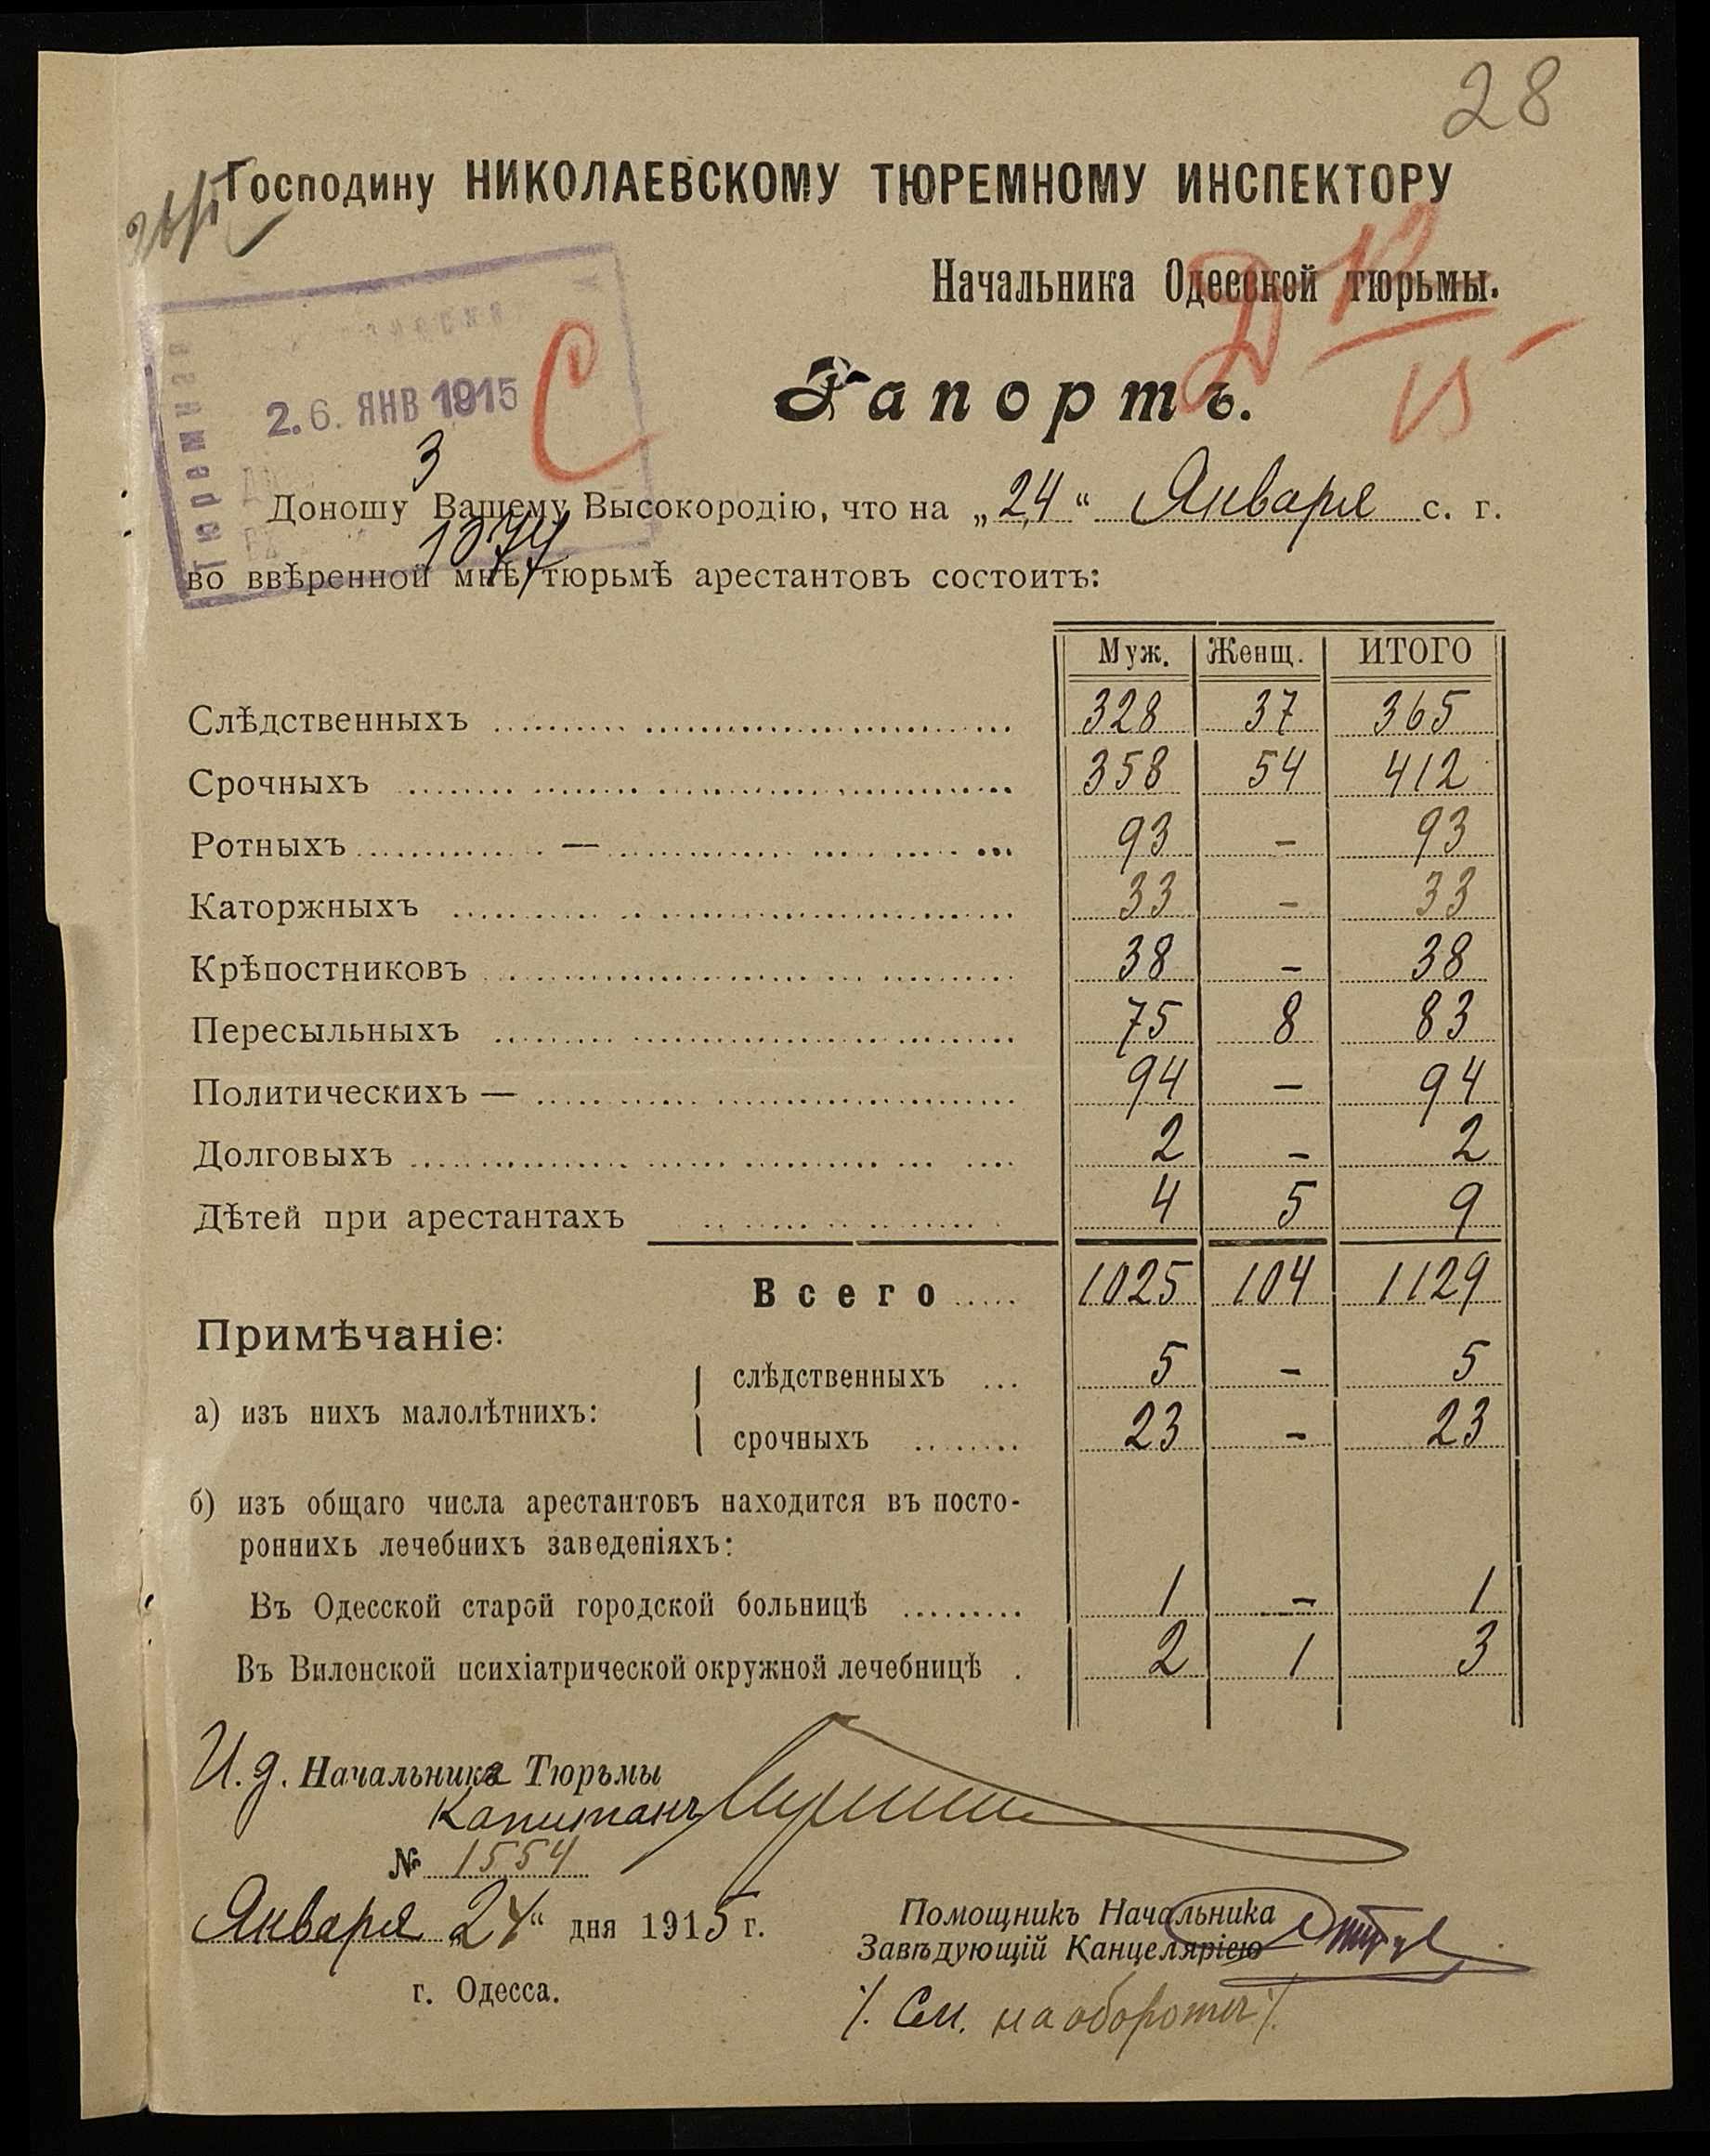 28
Господину НИКОЛАЕВСКОМУ ТЮРЕМНОМУ ИНСПЕКТОРУ
Начальника Одесской тюрьмы.
26. ЯНВ 1915
С
Рапортъ.
3
Доношу Вашему Высокородію, что на „24“ Января с. г.
1074
во ввѣренной мнѣ тюрьмѣ арестантовъ состоитъ:
Муж. Женщ. ИТОГО
Слѣдственныхъ 328 37 365
Срочныхъ 358 54 412
Ротныхъ — 93 - 93
Каторжныхъ 33 - 33
Крѣпостниковъ 38 - 38
Пересыльныхъ 75 8 83
Политическихъ — 94 - 94
Долговыхъ 2 - 2
Дѣтей при арестантахъ 4 5 9
Всего 1025 104 1129
Примѣчаніе:
слѣдственныхъ 5 - 5
а) изъ нихъ малолѣтнихъ:
срочныхъ 23 - 23
б) изъ общаго числа арестантовъ находится въ посто-
роннихъ лечебнихъ заведеніяхъ:
Въ Одесской старой городской больницѣ 1 - 1
Въ Виленской психіатрической окружной лечебницѣ 2 1 3
И.д. Начальника Тюрьмы
Капитанъ
№ 1554
Января „24“ дня 1915 г.
Помощникъ Начальника
Завѣдующій Канцеляріею
г. Одесса.
/. См. на оборотѣ /.